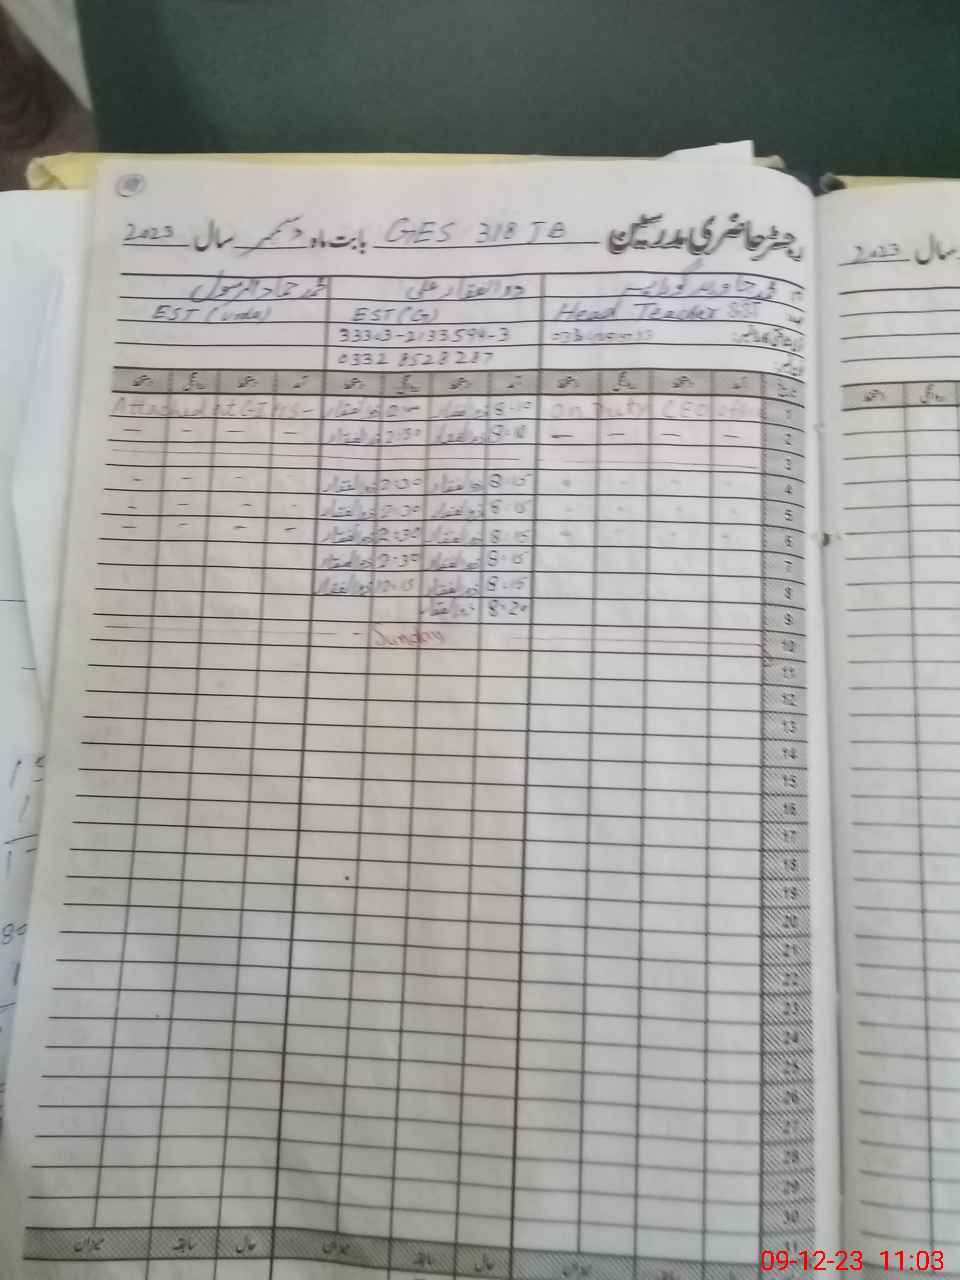 رجسٹر حاضری مدرسین GES 318 JB بابت ماہ دسمبر سال 2023
محمد جاوید ذوالفقار علی محمد حماد الرسول
Head Teacher SST EST (G) EST (Urdu)
33303-2133594-3
0332 8528287
تاریخ آمد دستخط روانگی دستخط آمد دستخط روانگی دستخط آمد دستخط روانگی دستخط
1 On Duty CEO office 8-10 ذوالفقار ذوالفقار Attached at
2 — — — — 8-10 ذوالفقار 2:30 ذوالفقار — — — —
3
4 - - - - 8-15 ذوالفقار 2:30 ذوالفقار - - - -
5 - - - - 8-15 ذوالفقار 2:30 ذوالفقار - - - -
6 - - - - 8-15 ذوالفقار 2:30 ذوالفقار - - - -
7 8-15 ذوالفقار 2:30 ذوالفقار
8 8-15 ذوالفقار 12-15 ذوالفقار
9 8-20 ذوالفقار
10 - Sunday
11
12
13
14
15
16
17
18
19
20
21
22
23
24
25
26
27
28
29
30
31
حال سابقہ میزان حال سابقہ میزان
سال 2023
روانگی دستخط
09-12-23 11:03